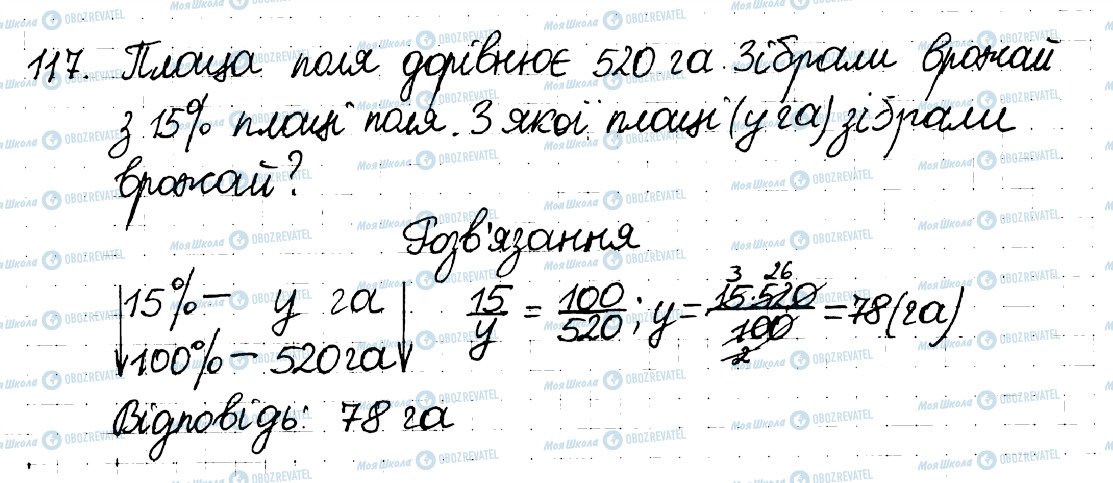 117. Площа поля дорівнює 520 га. Зібрали врожай
з 15% площі поля. З якої площі (у га) зібрали
врожай?
Розв'язання
15% — y га
100% — 520 га
15/y = 100/520; y = 15·520/100 = 78 (га)
3 26
2
Відповідь: 78 га
МояШкола OBOZREVATEL